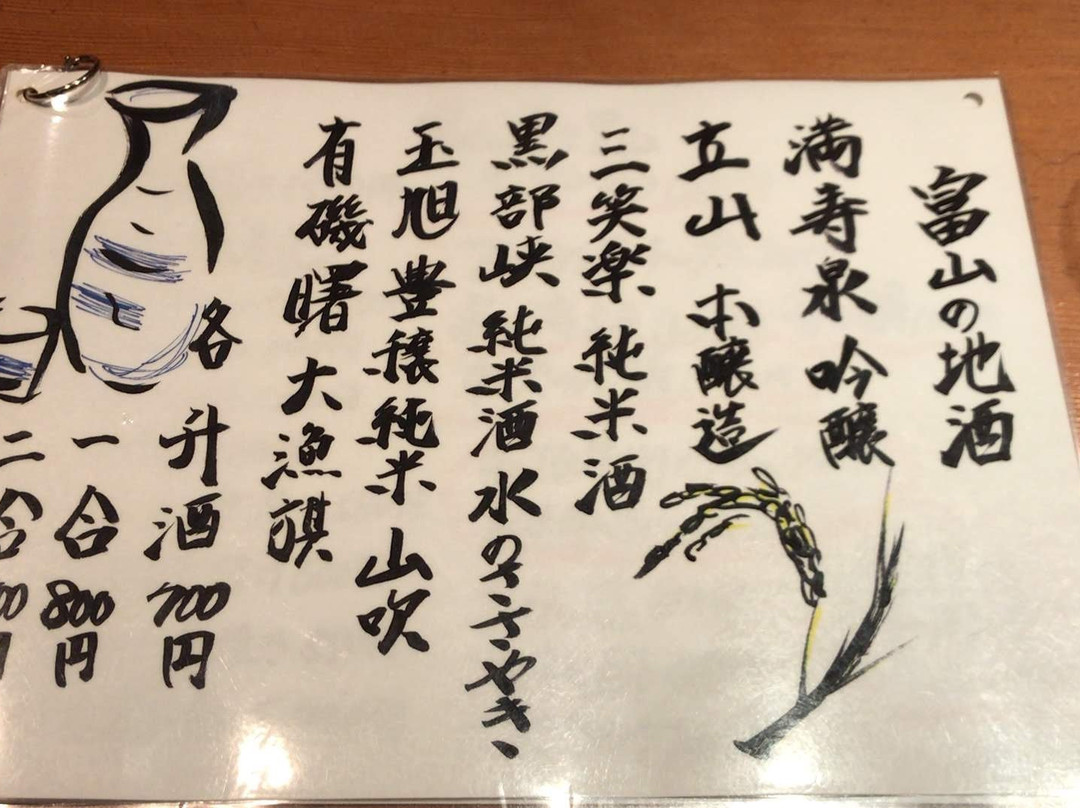 富山の地酒
満寿泉 吟醸
立山 本醸造
三笑楽 純米酒
黒部峡 純米酒 水のささやき
玉旭 豊穣 純米 山吹
有磯 曙 大漁旗
各
升酒 700円
一合 800円
二合